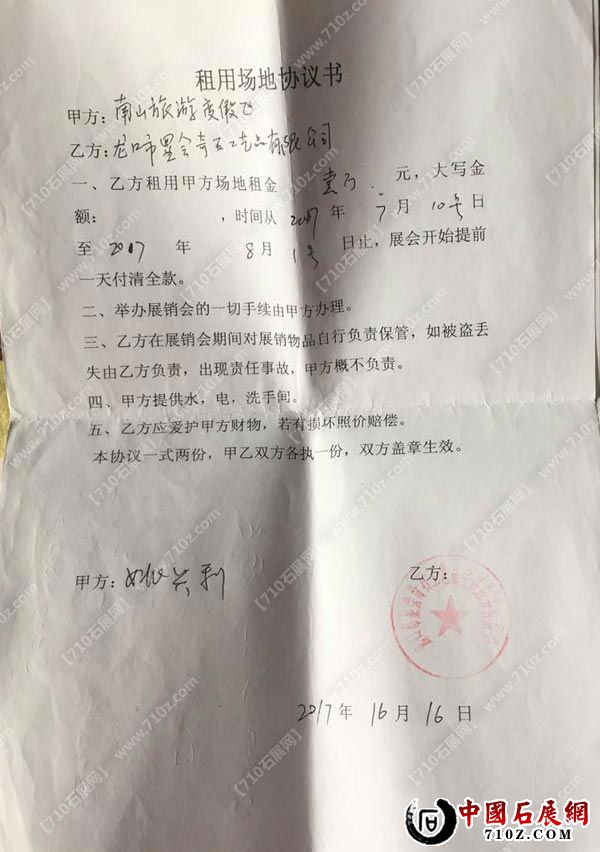 租用场地协议书
甲方：南山旅游度假
乙方：龙口市墨会奇石工艺品有限公司
一、乙方租用甲方场地租金 壹万 元，大写金
额： ，时间从 2017 年 7 月 10号 日
至 2017 年 8 月 1号 日止，展会开始提前
一天付清全款。
二、举办展销会的一切手续由甲方办理。
三、乙方在展销会期间对展销物品自行负责保管，如被盗丢
失由乙方负责，出现责任事故，甲方概不负责。
四、甲方提供水，电，洗手间。
五、乙方应爱护甲方财物，若有损坏照价赔偿。
本协议一式两份，甲乙双方各执一份，双方盖章生效。
甲方：
乙方：
2017年 16月 16日
中國石展網
710Z.COM
【710石展网】
www.710z.com